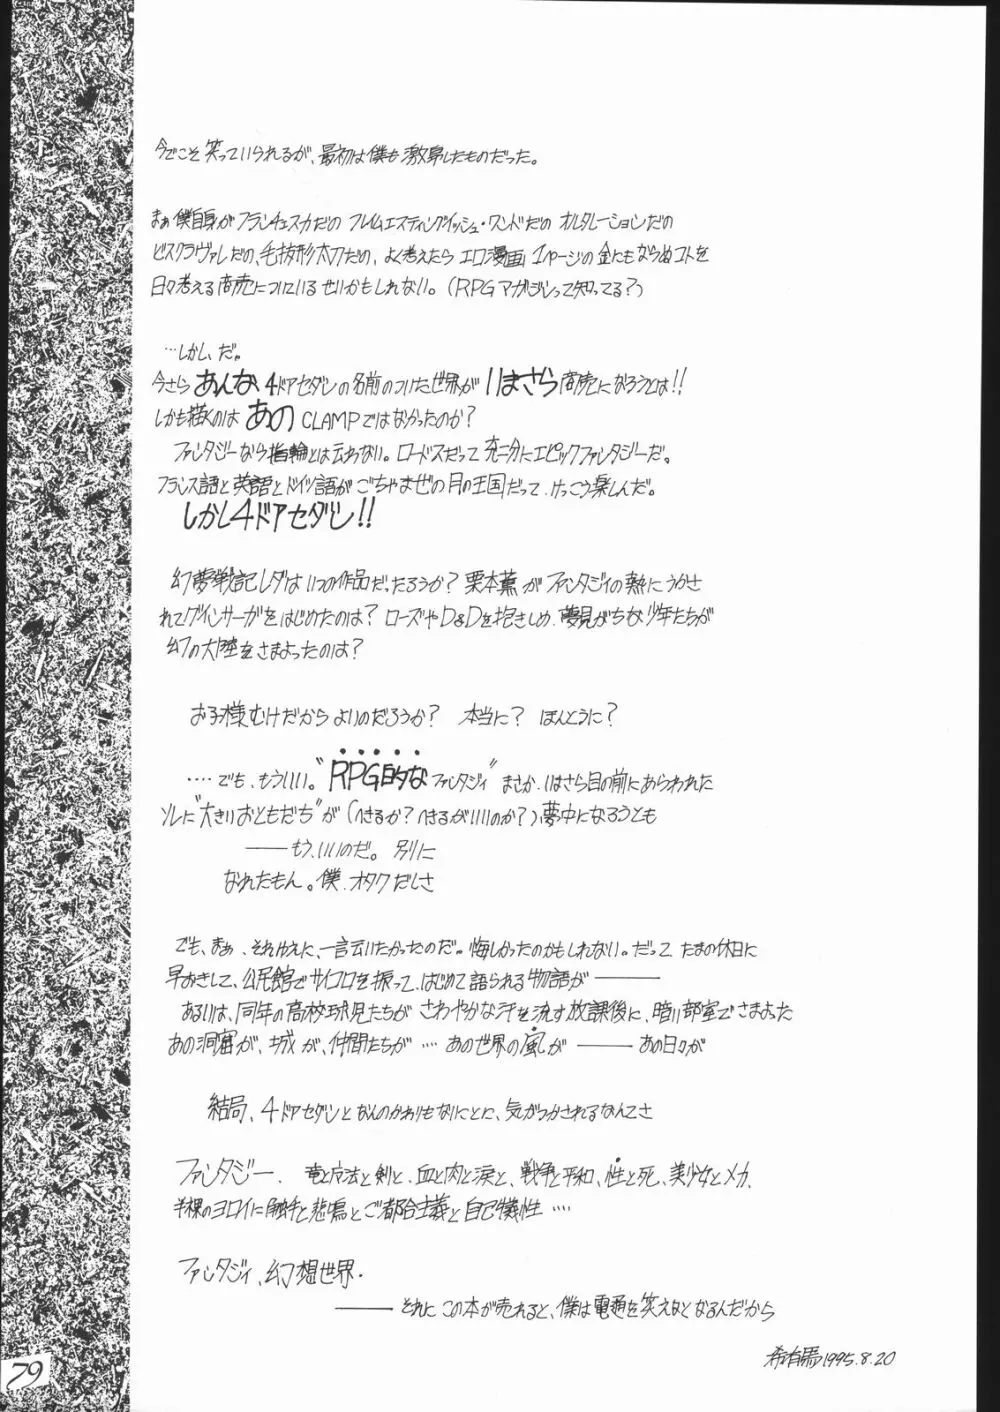 今でこそ笑っていられるが、最初は僕も激昂したものだった。
まぁ僕自身がフランチェスカだの フレイムエスティングイッシュ・ワンドだの オルタレーションだの
ビスクラヴァレだの、毛抜形太刀だの、よく考えたら エロ漫画 1ページの金にもならぬコトを
日々考える商売についているせいかもしれない。(RPGマガジンって知ってる?)
…しかし、だ。
今さら あんな 4ドアセダンの名前のついた世界が いまさら 商売になろうとは!!
しかも描くのは あの CLAMPではなかったのか?
ファンタジーなら指輪とは云わない。ロードスだって 充分にエピックファンタジーだ。
フランス語と英語とドイツ語が ごちゃまぜの月の王国だって、けっこう楽しんだ。
しかし4ドアセダン!!
幻夢戦記レダは いつの作品だったろうか? 栗本薫が ファンタジィの熱にうかさ
れてグインサーガをはじめたのは? ローズやD&Dを抱きしめ、夢見がちな少年たちが
幻の大陸をさまよったのは?
お子様むけだから よいのだろうか? 本当に? ほんとうに?
‥‥でも、もういい。“RPG的な ファンタジィ” まさか、いまさら目の前にあらわれた
ソレに“大きいおともだち”が (へきるか? へきるがいいのか?) 夢中になろうとも
――もう、いいのだ。別に
なれたもん。僕、オタクだしさ
でも、まぁ、それゆえに、一言云いたかったのだ。悔しかったのかもしれない。だって たまの休日に
早おきして、公民館でサイコロを振って、はじめて語られる物語が――
あるいは、同年の高校球児たちが さわやかな汗を流す放課後に、暗い部室でさまよった
あの洞窟が、城が、仲間たちが ‥‥ あの世界の風が ―― あの日々が
結局、4ドアセダンとなんのかわりもないことに、気がつかされるなんてさ
ファンタジー、 竜と魔法と剣と、血と肉と涙と、戦争と平和、性と死、美少女とメカ、
半裸のヨロイに触手と悲鳴とご都合主義と自己犠牲 ‥‥
ファンタジィ、幻想世界・
―― それに この本が売れると、僕は電通を笑えなくなるんだから
希有馬 1995.8.20
79